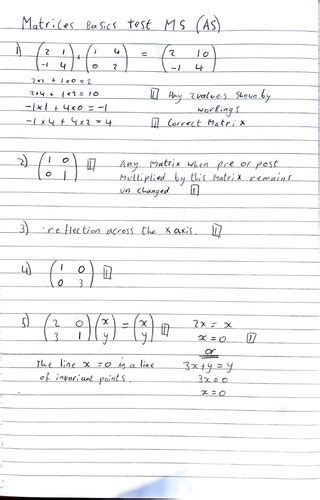 Matrices Basics test MS (AS)
1) (2 1 / -1 4) x (1 4 / 0 2) = (2 10 / -1 4)
2x1 + 1x0 = 2
2x4 + 1x2 = 10 [1] Any 2 values shown by
-1x1 + 4x0 = -1 workings
-1x4 + 4x2 = 4 [1] Correct Matrix
2) (1 0 / 0 1) [1] Any Matrix when pre or post
Multiplied by this Matrix remains
un changed [1]
3) reflection across the x axis. [1]
4) (1 0 / 0 3) [1]
5) (2 0 / 3 1) (x / y) = (x / y) [1] 2x = x
x = 0 [1]
or
The line x = 0 is a line 3x+y = y
of invariant points. 3x = 0
x = 0